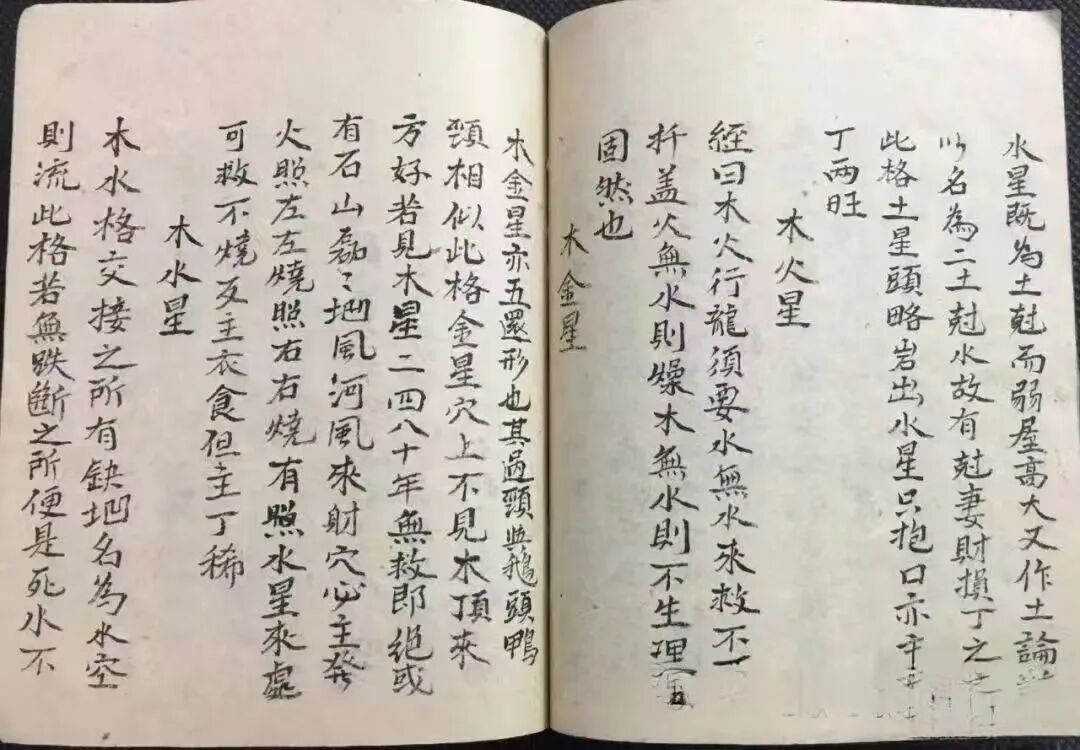 水星既為土尅而弱屋高大又作土論
以名為二土尅水故有尅妻財損丁之
此格土星頭略岩出水星只抱口亦
丁两旺
木火星
經曰木火行龍須要水無水來救不
扦盖火無水則燥木無水則不生理
固然也
木金星
木金星亦五還形也其過頸與鵝頭鴨
頸相似此格金星穴上不見木頂來
方好若見木星二四八十年無救即絕或
有石山磊〻坳風河風來射穴心主發
火照左左燒照右右燒有照水星來處
可救不燒反主衣食但主丁稀
木水星
木水格交接之所有缺坳名為水空
則流此格若無跌斷之所便是死水不